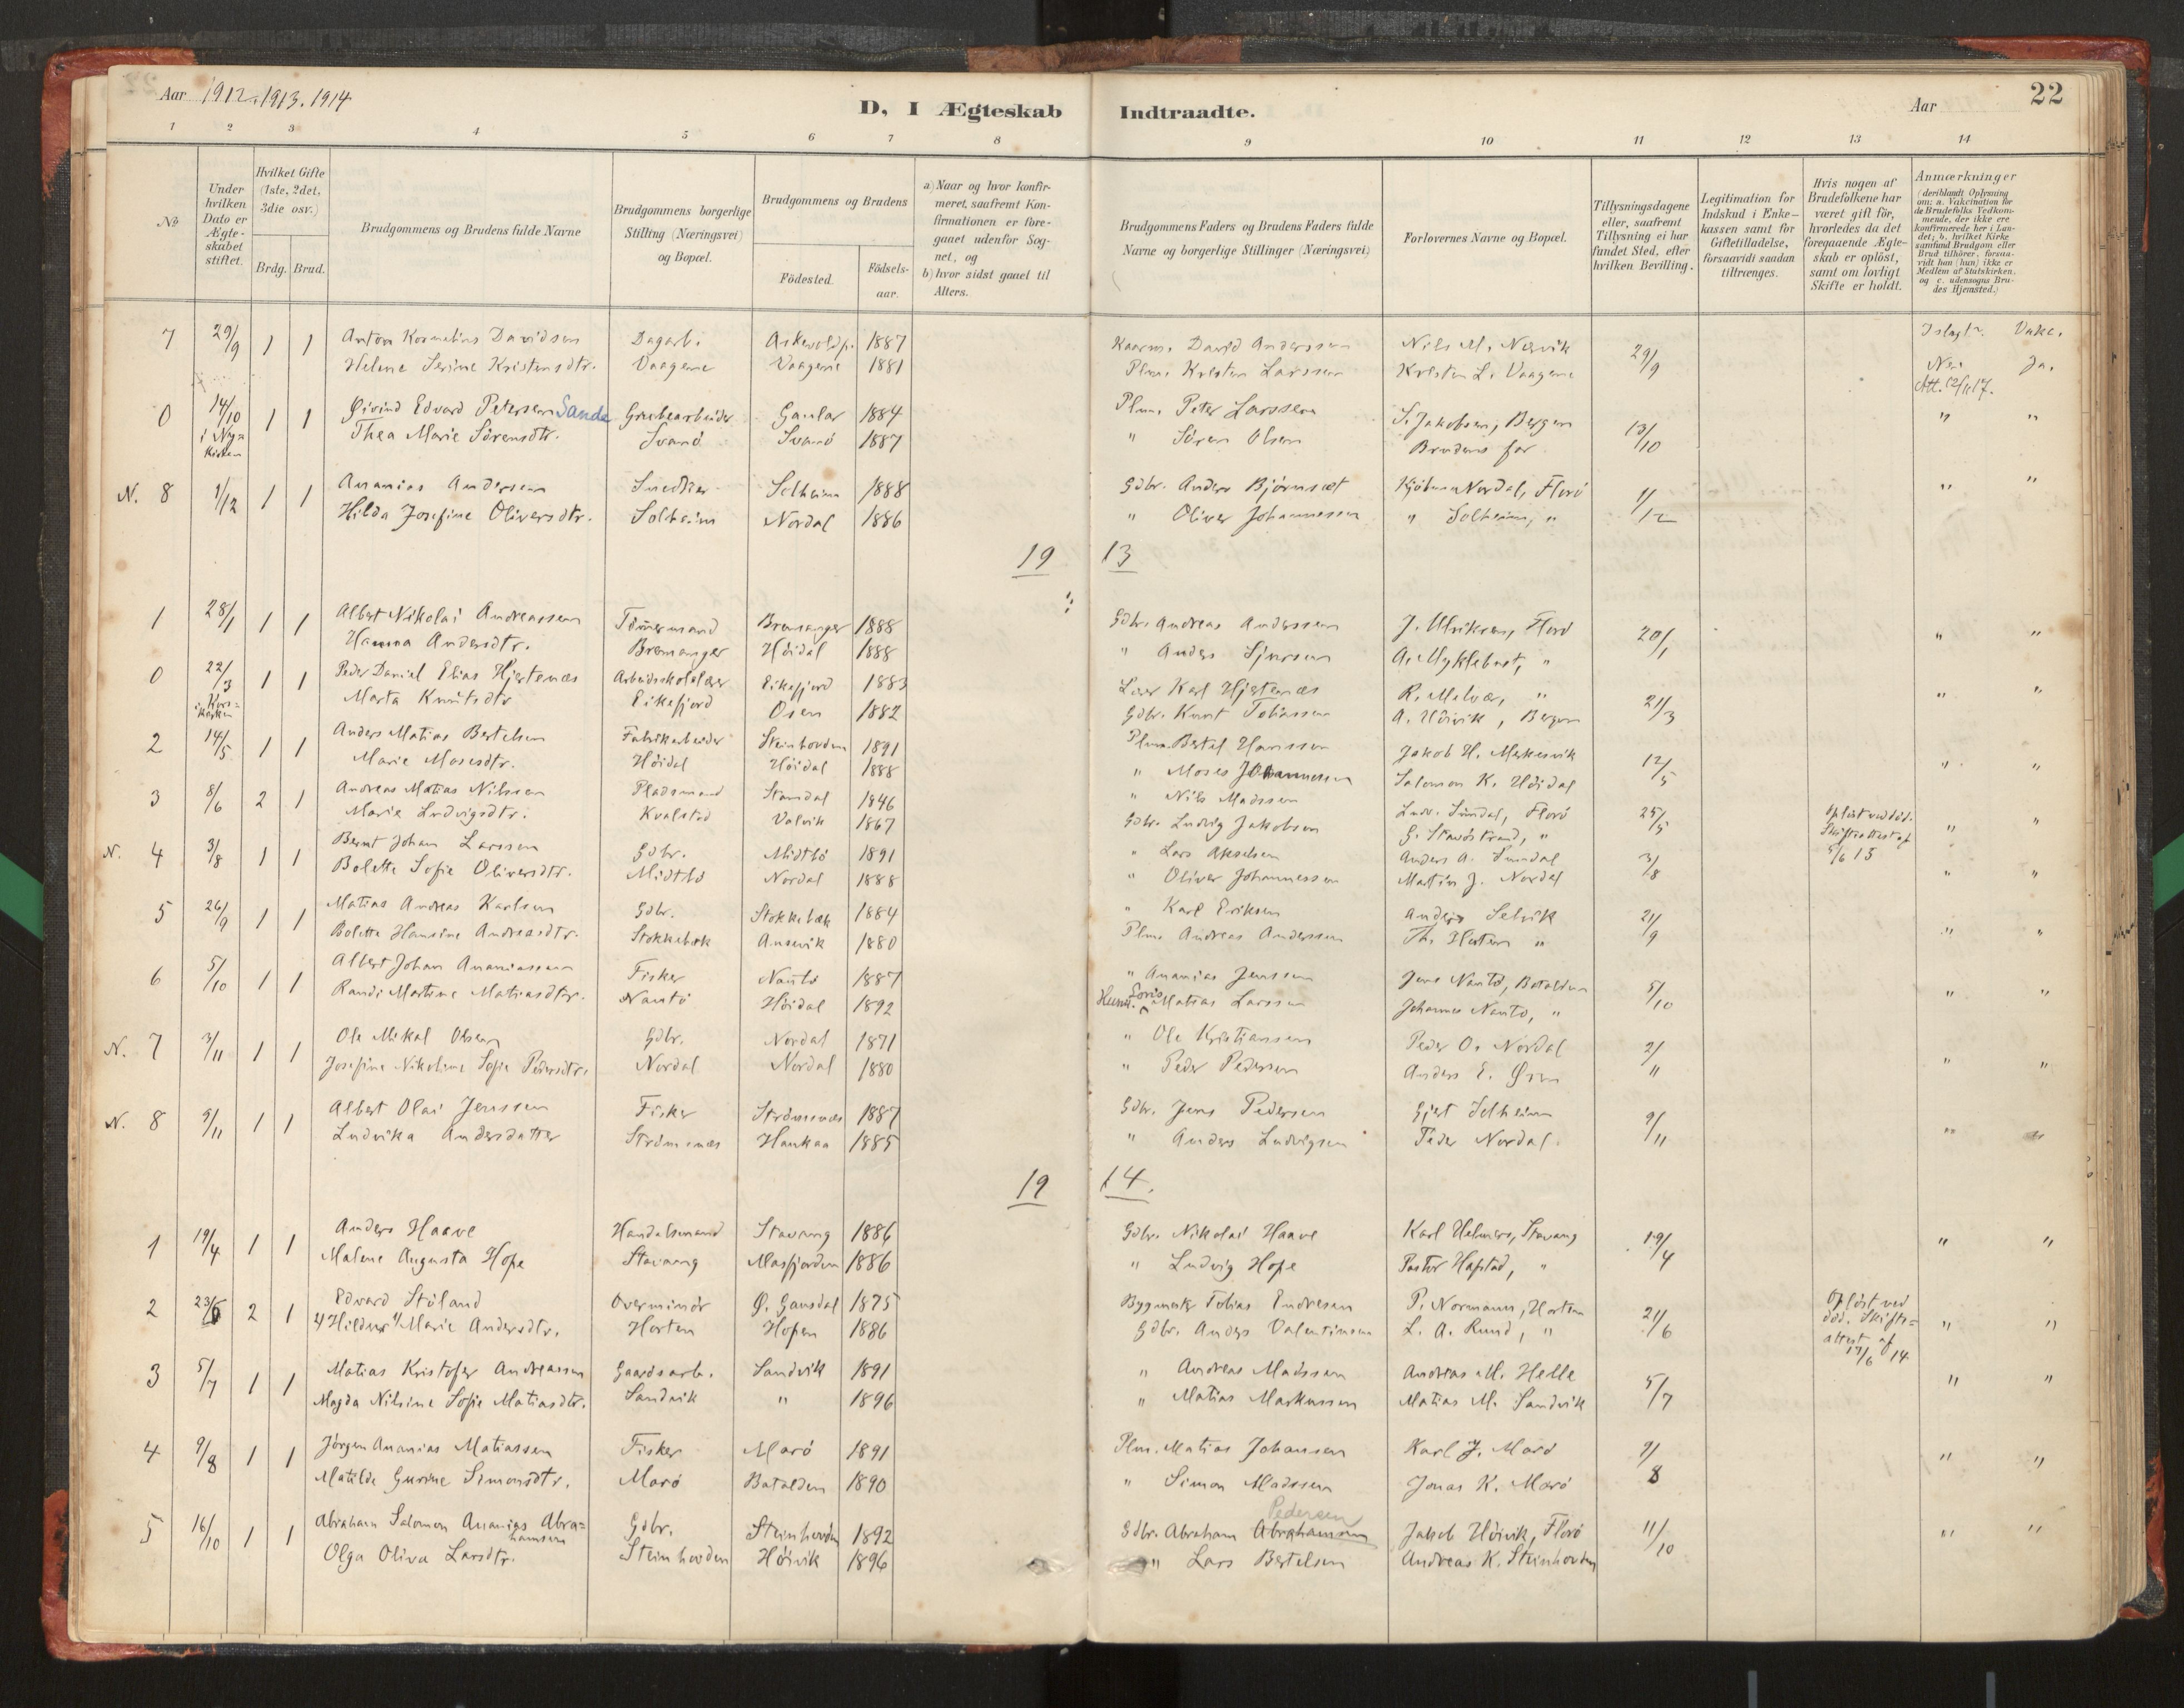 Aar 1912. 1913. 1914
D, I Ægteskab Indtraadte.
Aar 22
1 2 3 4 5 6 7 8 9 10 11 12 13 14
No
Under hvilken Dato er Ægte-skabet stiftet.
Hvilket Gifte (1ste, 2det, 3die osv.)
Brdg. Brud.
Brudgommens og Brudens fulde Navne
Brudgommens borgerlige Stilling (Næringsvei) og Bopæl.
Brudgommens og Brudens
Födested.
Födsels-aar.
a) Naar og hvor konfir-meret, saafremt Kon-firmationen er fore-gaaet udenfor Sog-net, og
b) hvor sidst gaaet til Alters.
Brudgommens Faders og Brudens Faders fulde Navne og borgerlige Stillinger (Næringsvei)
Forlovernes Navne og Bopæl.
Tillysningsdagene eller, saafremt Tillysning ei har fundet Sted, efter hvilken Bevilling.
Legitimation for Indskud i Enke-kassen samt for Giftetilladelse, forsaavidt saadan tiltrænges.
Hvis nogen af Brudefolkene har været gift för, hvorledes da det foregaaende Ægte-skab er oplöst, samt om lovligt Skifte er holdt.
Anmærkninger (deriblandt Oplysning om: a. Vakcination for de Brudefolks Vedkom-mende, der ikke ere konfirmerede her i Lan-det; b. hvilket Kirke samfund Brudgom eller Brud tilhörer, forsaa-vidt han (hun) ikke er Medlem af Statskirken. og c. udensogns Bru-des Hjemsted.)
7 29/9 1 1 Anton Kornelius Davidsen Dagarb. Askevold p. 1887 David Anderssen Nils M. Nesvik 29/9 Vakc.
Helene Serine Kristensdtr. Vaagene Vaagene 1881 Plm. Kristen Larssen Kristen L. Vaagene Nei Ja.
0 14/10 i Ny=kirken 1 1 Øivind Edvard Petersen Sande Grubearbeider Gaular 1884 Plm. Peter Larssen S. Jakobsen, Bergen 13/10 " "
Thea Marie Sörensdtr. Svanö Svanö 1887 " Sören Olsen Brudens far
N. 8 1/12 1 1 Ananias Andersen Snedker Solheim 1888 Gdbr. Anders Björnset Nordal, Florö 1/12 " "
Hilda Josefine Oliversdtr. Solheim Nordal 1886 " Oliver Johannessen " Solheim, "
19 13
1 28/1 1 1 Albert Nikolai Andreassen Tömmermand Bremanger 1888 Gdbr. Andreas Anderssen J. Ulriksen, Florö 20/1 " "
Hanna Andersdtr. Bremanger Höidal 1888 " Anders Sjursen A. Myklebust, "
0 22/3 i Kors=kirken 1 1 Peder Daniel Elias Hjertenæs Arbeidsskolelærer Eikefjord 1883 Lærer Karl Hjertenæs R. Melvær, " 21/3 " "
Marta Knutsdtr Eikefjord Osen 1882 Gdbr. Knut Tobiassen A. Höivik, Bergen
2 14/5 1 1 Anders Matias Bertelsen Fabrikarbeider Steinhovden 1891 Plm. Bertel Hanssen Jakob H. 12/5 " "
Marie Mosesdtr. Höidal Höidal 1888 " Moses Johannessen Salomon K. Höidal
3 8/6 2 1 Andreas Matias Nilssen Pladsmand Standal 1846 " Nils Madssen Ludv. Sundal, Florö 25/5 Oplöst ved död. Skifteattest af 5/6 13 " "
Marie Ludvigsdtr. Kvalstad Valvik 1867 Gdbr. Ludvig Jakobsen G. Stavöstrand, "
N. 4 3/8 1 1 Bernt Johan Larssen Gdbr. Midtbö 1891 " Lars Akselsen Anders A. Sundal 3/8 " "
Bolette Sofie Oliversdtr. Midtbö Nordal 1888 " Oliver Johannessen Martin J. Nordal
5 26/9 1 1 Matias Andreas Karlsen Gdbr. Stokkebæk 1884 " Karl Eriksen Anders Selvik 21/9 " "
Bolette Hansine Andreasdtr. Stokkebæk Ausevik 1880 Plm. Andreas Anderssen "
6 5/10 1 1 Albert Johan Ananiassen Fisker Nautö 1887 " Ananias Jenssen Jens Nautö, Batalden 5/10 " "
Randi Martine Matiasdtr. Nautö Höidal 1892 Husm. Matias Larssen Johannes Nautö, "
N. 7 3/11 1 1 Ole Mikal Olsen Gdbr. Nordal 1871 " Ole Kristiansen Peder O. Nordal 2/11 " "
Josefine Nikoline Sofie Pedersdtr. Nordal Nordal 1880 " Peder Pedersen Anders E. Øren
N. 8 9/11 1 1 Albert Olai Jenssen Fisker Strömsnæs 1887 Gdbr. Jens Pedersen Gjert Solheim 9/11 " "
Ludvika Andersdatter Strömsnæs Haukaa 1885 " Anders Ludvigsen Peder Nordal.
19 14.
1 19/4 1 1 Anders Haave Handelsmand Stavang 1886 Gdbr. Nikolai Haave Karl Helmers, Stavang 19/4 " "
Malene Augusta Hope Stavang Masfjorden 1886 " Ludvig Hope Pastor Hafstad, "
2 23/6 2 1 Edvard Stöland Overminör Ø. Gausdal 1875 Bygmester Tobias Endresen P. Normann, Horten 21/6 Oplöst ved död. Skifte=attest af 17/6 14 " "
Hildur Marie Andersdtr. Horten Hopen 1886 Gdbr. Anders Valentinsen L. A. Rund, "
3 5/7 1 1 Matias Kristofer Andreassen Gaardsarb. Sandvik 1891 " Andreas Madssen Andreas M. Helle 5/7 " "
Magda Nilsine Sofie Matiasdtr. Sandvik " 1896 " Matias Markussen Matias M. Sandvik
4 9/8 1 1 Jörgen Ananias Matiassen Fisker Marö 1891 Plm. Matias Johansen Karl J. Marö 9/8 " "
Matilde Gurine Simonsdtr. Marö Batalden 1890 " Simon Madssen Jonas K. Marö
5 16/10 1 1 Abraham Salomon Ananias Abra=hamsen Gdbr. Steinhovden 1892 Gdbr. Abraham Abrahamsen Pedersen Jakob Höivik, Florö 11/10 " "
Olga Oliva Larsdtr. Steinhovden Höivik 1896 " Lars Bertelsen Andreas K. Steinhovden